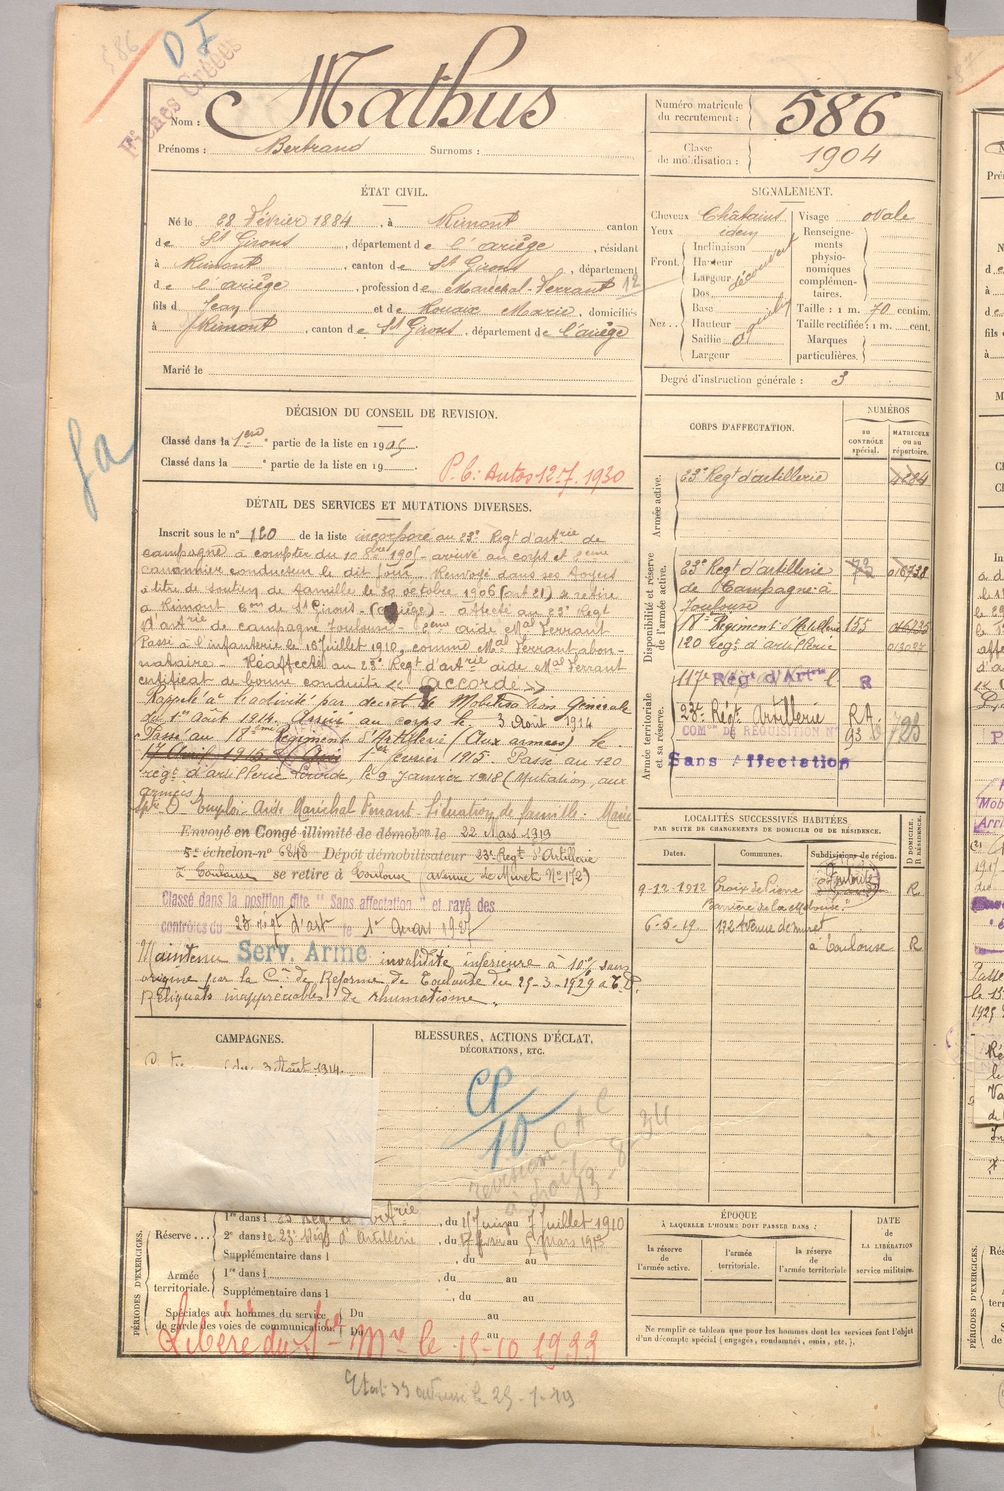 586
D I
Fiches Créées
Nom : Mathus
Prénoms : Bertrand Surnoms :
Numéro matricule du recrutement : 586
Classe de mobilisation : 1904
ÉTAT CIVIL.
Né le 28 février 1884, à Rimont canton
de St Girons, département de l'ariège, résidant
à Rimont, canton de St Girons, département
de l'ariège, profession de Maréchal-ferrant 12
fils de Jean et de Rouaix Marie, domiciliés
à Rimont, canton de St Girons, département de l'ariège
Marié le
SIGNALEMENT.
Cheveux Châtains
Yeux idem
Front. Inclinaison
Hauteur
Largeur découvert
Nez.. Dos
Base
Hauteur
Saillie
Largeur
Visage ovale
Renseignements physionomiques complémentaires.
Taille : 1 m. 70 centim.
Taille rectifiée : 1 m. cent.
Marques particulières.
Degré d'instruction générale : 3
DÉCISION DU CONSEIL DE REVISION.
Classé dans la 1ère partie de la liste en 1905
Classé dans la partie de la liste en 19
P. C. Autos 12.7.1930
DÉTAIL DES SERVICES ET MUTATIONS DIVERSES.
Inscrit sous le n° 120 de la liste incorporé au 23e Regt d'artrie de
campagne à compter du 10 8bre 1905 arrivé au corps et 2ème
canonnier conducteur le dit jour. Renvoyé dans ses foyers
à titre de soutien de famille le 30 octobre 1906 (art 21) se retire
à Rimont con de St Girons (ariège) - affecté au 23e Regt
d'artrie de campagne Toulouse aide Mal ferrant
Passé à l'infanterie le 10 juillet 1910, comme Mal ferrant abon-
nataire. Réaffecté au 23e Regt d'artrie aide Mal ferrant
certificat de bonne conduite « accordé »
Rappelé à l'activité par décret de Mobilisation Générale
du 1er Août 1914. Arrivé au corps le 3 Août 1914
Passé au 18ème Régiment d'Artillerie (Aux armées) le
17 Avril 1915 1er février 1915. Passé au 120
régt d'artillerie lourde, le 9 Janvier 1918 (Mutation, aux
armées)
Emploi Aide Maréchal Ferrant - Situation de famille. Marié
Envoyé en Congé illimité de démobon le 22 Mars 1919
5e échelon-n° 6848 Dépôt démobilisateur 23e Regt d'Artillerie
à Toulouse se retire à Toulouse (avenue de Muret N° 172)
Classé dans la position dite "Sans affectation" et rayé des
contrôles du 23 régt d'art le 1er Mars 1927
Maintenu Serv. Armé invalidité inférieure à 10% sans
origine par la Con de Réforme de Toulouse du 25-3-1929
Reliquats inappréciables de rhumatisme.
CORPS D'AFFECTATION.
NUMÉROS
au contrôle spécial.
matricule ou au répertoire.
Armée active.
23e Regt d'artillerie
Disponibilité et réserve de l'armée active.
23e Regt d'artillerie
de Campagne à
Toulouse
18e Régiment d'Artillerie 155
120 Regt d'artillerie
Armée territoriale et sa réserve.
117e Régt d'Artrie R
23e Régt Artillerie RA
COMon DE RÉQUISITION N° 93
Sans Affectation
LOCALITÉS SUCCESSIVES HABITÉES
PAR SUITE DE CHANGEMENTS DE DOMICILE OU DE RÉSIDENCE.
Dates. Communes. Subdivisions de région. D. DOMICILE. R. RÉSIDENCE.
9-12-1912 Croix de Pierre Toulouse R
6-5-19 172 Avenue de muret
à Toulouse R
CAMPAGNES.
du 3 Août 1914.
BLESSURES, ACTIONS D'ÉCLAT,
DÉCORATIONS, ETC.
CP/10
revision
PÉRIODES D'EXERCICES.
Réserve... 1re dans le 23 Regt d'Artrie, du 17 juin au 7 juillet 1910
2e dans le 23e Regt d'Artillerie, du au mars 1913
Supplémentaire dans l , du au
Armée territoriale. 1re dans l , du au
Supplémentaire dans l , du au
Spéciales aux hommes du service de garde des voies de communication. Du au
Du au
Libéré du Sce Mre le 15-10-1933
ÉPOQUE
À LAQUELLE L'HOMME DOIT PASSER DANS :
la réserve de l'armée active.
l'armée territoriale.
la réserve de l'armée territoriale
DATE DE LA LIBÉRATION du service militaire.
Ne remplir ce tableau que pour les hommes dont les services font l'objet
d'un décompte spécial (engagés, condamnés, omis, etc.).